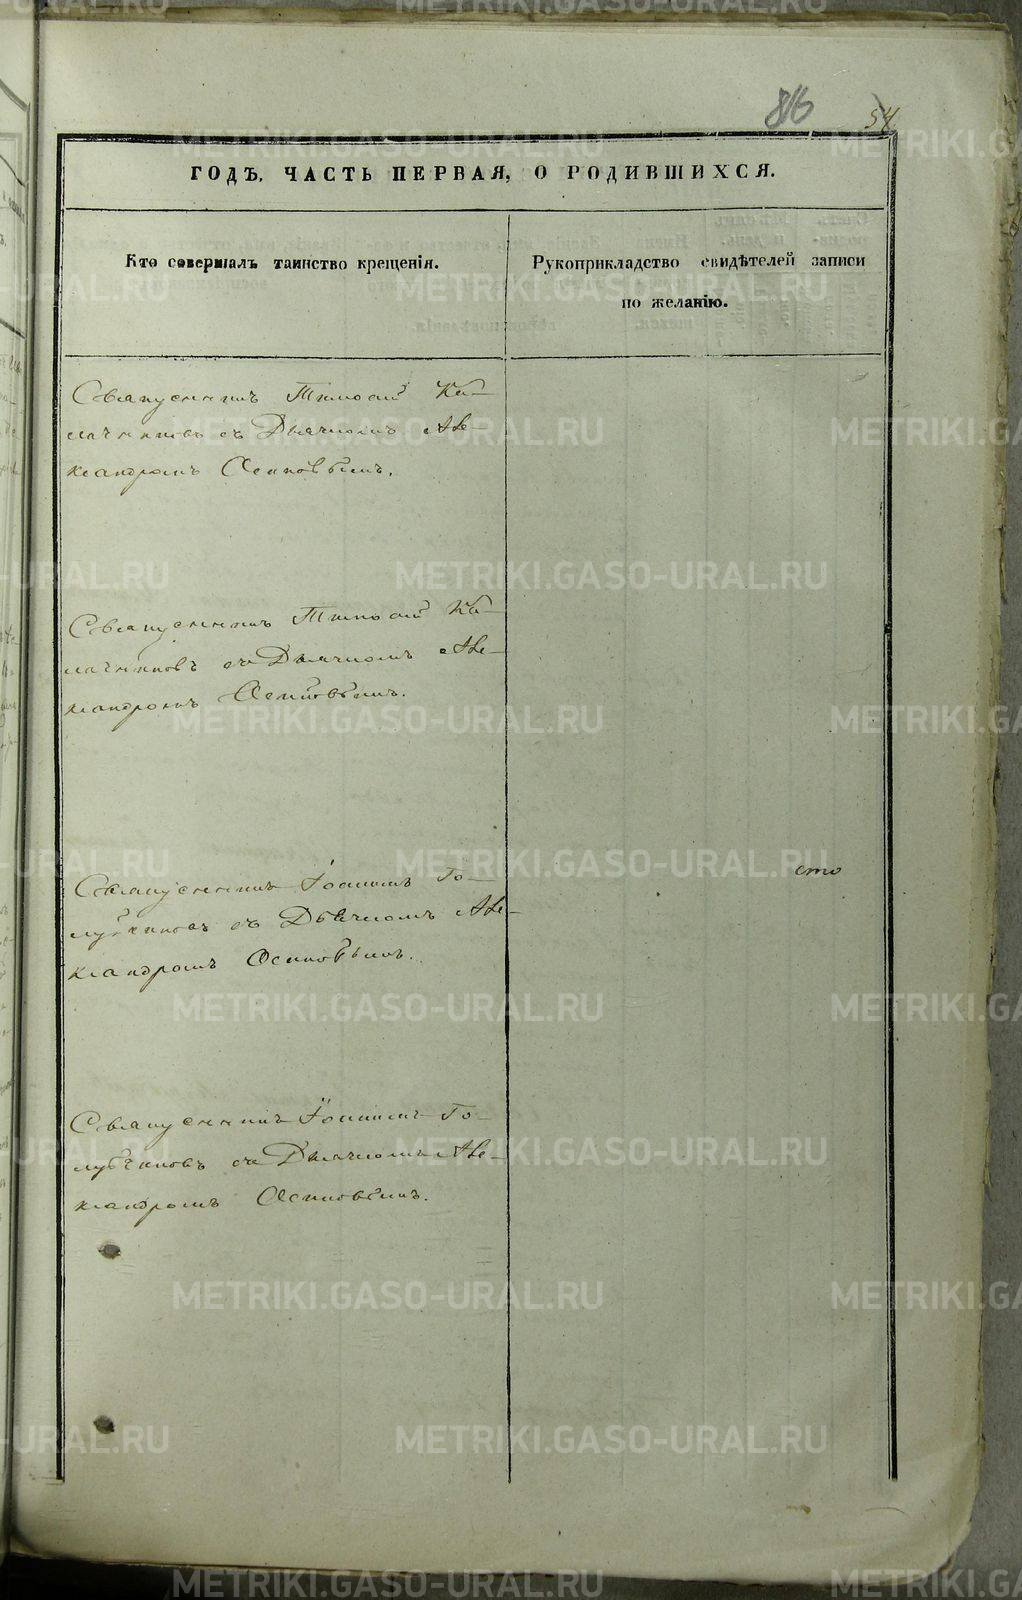 816
54
ГОДѢ, ЧАСТЬ ПЕРВАЯ, О РОДИВШИХСЯ.
Кто совершалъ таинство крещенія.
Рукоприкладство свидѣтелей записи
по желанію.
Священникъ Тимофей Ка-
лачниковъ съ Дьячкомъ Але-
ксандромъ Осиповымъ.
Священникъ Тимофей Ка-
лачниковъ съ Дьячкомъ Але-
ксандромъ Осиповымъ.
Священникъ Іоаннъ Го-
лубчиковъ съ Дьячкомъ Але-
ксандромъ Осиповымъ.
сто
Священникъ Іоаннъ Го-
лубчиковъ съ Дьячкомъ Але-
ксандромъ Осиповымъ.
METRIKI.GASO-URAL.RU